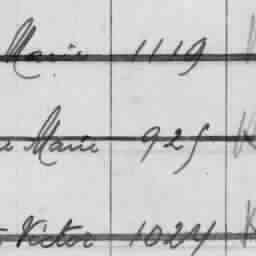 Marie 1119
Marie 925
Victor 1024